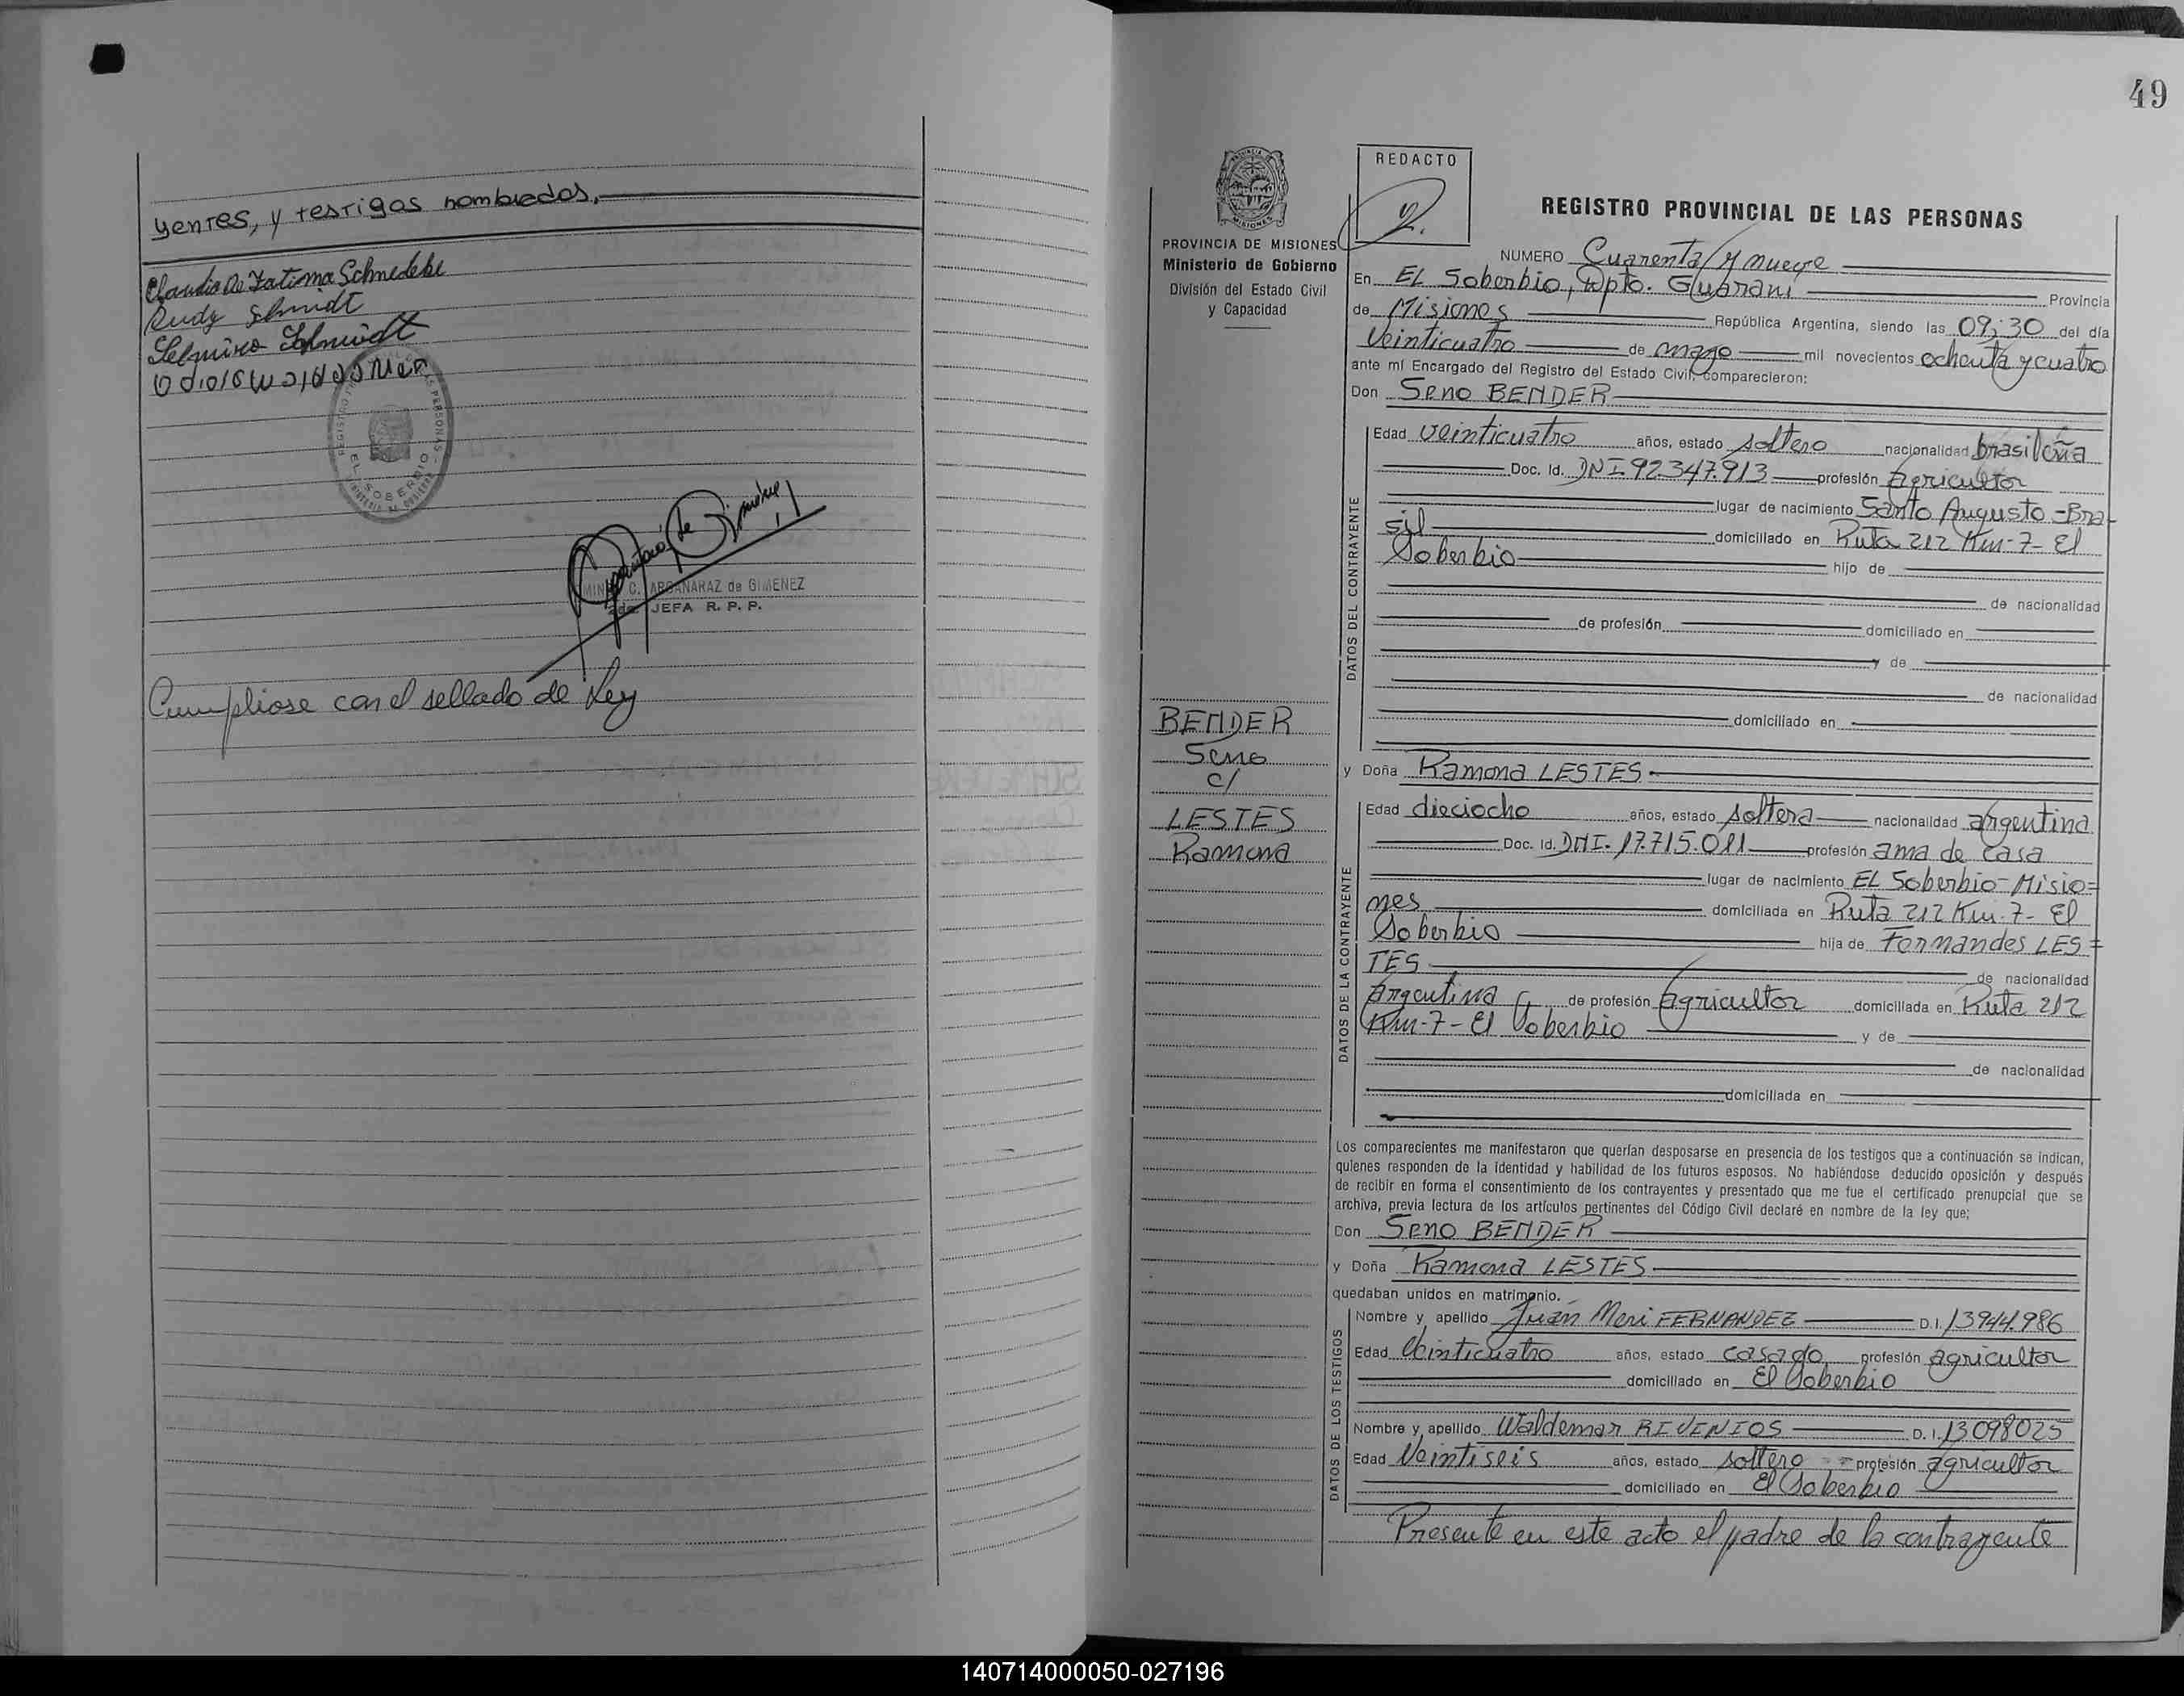 yentes, y testigos nombrados.
Claudia De Fatima Schnedeke
Rudy Schmidt
Selmiro Schmidt
REGISTRO PERSONAS
EL SOBERBIO
C. ARGAÑARAZ de GIMENEZ
JEFA R. P. P.
Cumpliose con el sellado de Ley
49
REDACTO
PROVINCIA DE MISIONES
Ministerio de Gobierno
División del Estado Civil
y Capacidad
BENDER
Seno
c/
LESTES
Ramona
REGISTRO PROVINCIAL DE LAS PERSONAS
NUMERO Cuarenta y nueve
En EL Soberbio, Dpto. Guarani Provincia
de Misiones República Argentina, siendo las 09,30 del día
Veinticuatro de mayo mil novecientos ochenta y cuatro
ante mí Encargado del Registro del Estado Civil, comparecieron:
Don Seno BENDER
DATOS DEL CONTRAYENTE
Edad veinticuatro años, estado soltero nacionalidad brasileña
Doc. Id. DNI-92.347.913 profesión Agricultor
lugar de nacimiento Santo Augusto-Bra-
sil domiciliado en Ruta 212 Km-7- El
Soberbio hijo de
de nacionalidad
de profesión domiciliado en
y de
de nacionalidad
domiciliado en
y Doña Ramona LESTES.
DATOS DE LA CONTRAYENTE
Edad dieciocho años, estado soltera nacionalidad argentina
Doc. Id. DNI-17.715.011 profesión ama de casa
lugar de nacimiento EL Soberbio-Misio=
nes domiciliada en Ruta 212 Km-7- El
Soberbio hija de Fornandes LES=
TES de nacionalidad
Argentina de profesión Agricultor domiciliada en Ruta 212
Km-7- El Soberbio y de
de nacionalidad
domiciliada en
Los comparecientes me manifestaron que querían desposarse en presencia de los testigos que a continuación se indican,
quienes responden de la identidad y habilidad de los futuros esposos. No habiéndose deducido oposición y después
de recibir en forma el consentimiento de los contrayentes y presentado que me fue el certificado prenupcial que se
archiva, previa lectura de los artículos pertinentes del Código Civil declaré en nombre de la ley que;
Don Seno BENDER
y Doña Ramona LESTES.
quedaban unidos en matrimonio.
DATOS DE LOS TESTIGOS
Nombre y apellido Juan Meri FERNANDEZ D.I. 13944.986
Edad Veinticuatro años, estado casado profesión agricultor
domiciliado en El Soberbio
Nombre y apellido Waldemar RIVENIOS D.I. 13098025
Edad Veintiseis años, estado soltero profesión agricultor
domiciliado en El Soberbio
Presente en este acto el padre de la contrayente
140714000050-027196